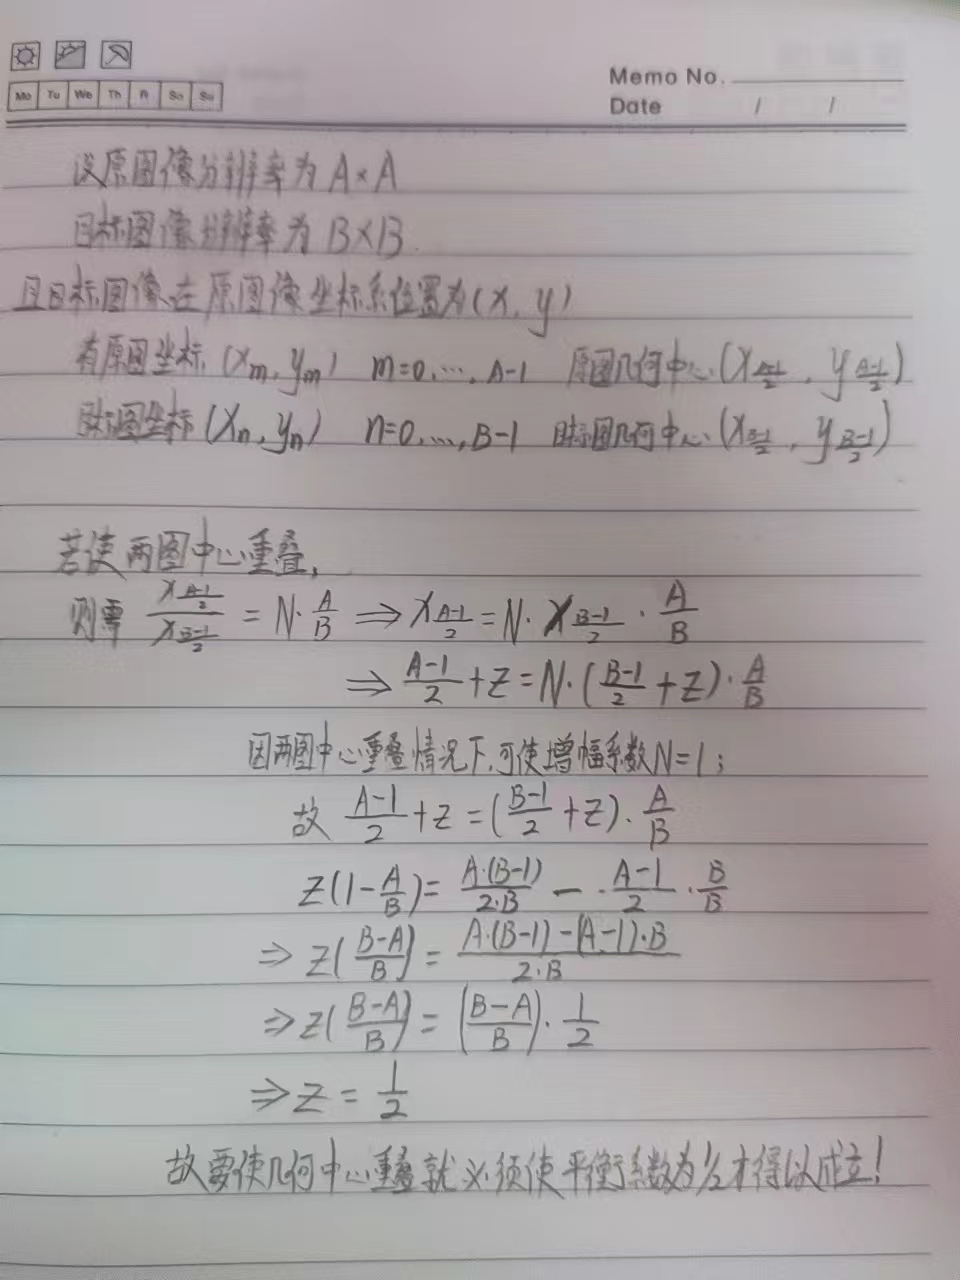 Memo No.
Mo Tu We Th Fr Sa Su
Date / /
设原图像分辨率为 A×A
目标图像分辨率为 B×B.
且目标图像在原图像坐标系位置为(x, y)
有原图坐标 (xₘ, yₘ) m=0,…, A-1 原图几何中心(x_{\frac{A-1}{2}}, y_{\frac{A-1}{2}})
目标图坐标 (xₙ, yₙ) n=0,…,B-1 目标图几何中心(x_{\frac{B-1}{2}}, y_{\frac{B-1}{2}})
若使两图中心重叠,
则需 \frac{x_{\frac{A-1}{2}}}{x_{\frac{B-1}{2}}} = N·\frac{A}{B} ⇒ x_{\frac{A-1}{2}} = N·x_{\frac{B-1}{2}}·\frac{A}{B}
⇒ \frac{A-1}{2}+Z = N·(\frac{B-1}{2}+Z)·\frac{A}{B}
因两图中心重叠情况下,可使增幅系数N=1;
故 \frac{A-1}{2}+Z = (\frac{B-1}{2}+Z)·\frac{A}{B}
Z(1-\frac{A}{B}) = \frac{A·(B-1)}{2·B} - ·\frac{A-1}{2}·\frac{B}{B}
⇒ Z(\frac{B-A}{B}) = \frac{A·(B-1)-(A-1)·B}{2·B}
⇒ Z(\frac{B-A}{B}) = (\frac{B-A}{B})·\frac{1}{2}
⇒ Z = \frac{1}{2}
故要使几何中心重叠就必须使平衡系数为1/2才得以成立!